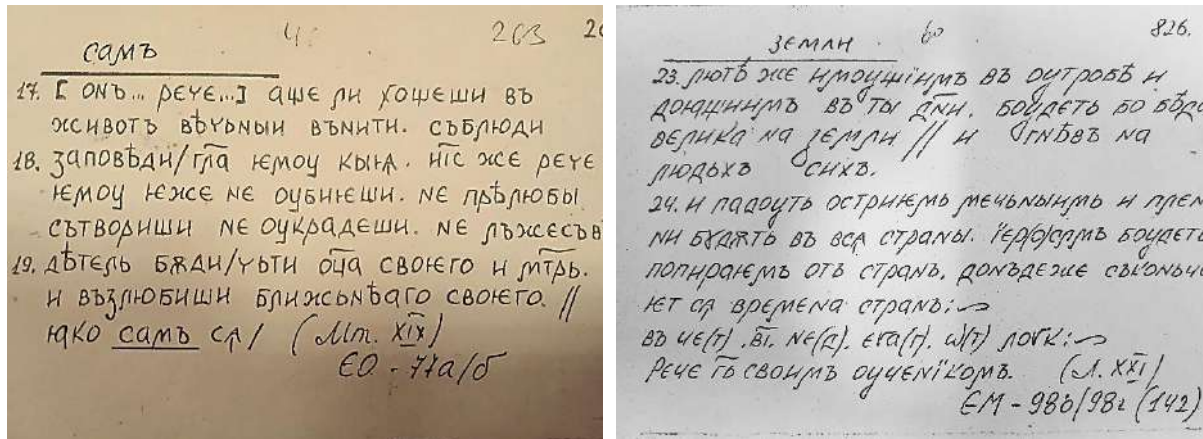 4. 203 20
самъ
17. [ онъ... рече...] аще ли хощеши въ
животъ вѣчьныи вънити. съблюди
18. заповѣди/гл҃а ѥмоу кыꙗ. и҃с же рече
ѥмоу ѥже не оубиѥши. не прѣлюбы
сътвориши не оукрадеши. не лъжесъв
19. дѣтель бѫди/чьти оц҃а своѥго и мт҃рь.
и възлюбиши ближьнѣаго своѥго. //
ꙗко самъ сѧ/ (Мт. XIX)
ЄО - 77а/б
земли 60 826.
23. лютѣ же имоущїимъ въ оутробѣ и
доѩщиимъ въ ты дн҃и. боудеть бо бѣд
велика на земли // и гнѣвъ на
людьхъ сихъ.
24. и падоуть остриѥмь мечьныимь и плен
ни бѫдѫть въ всѧ страны. їер(о)с҃лмъ боудеть
попираѥмъ отъ странъ. доньдеже съконьч
ѥт сѧ времена странъ:~
въ че(т). в҃і. не(д). ева(г). ѡ(т) лоук:~
Рече г҃ь своимъ оученїкомъ. (Л. XXI)
ЄМ - 98в/98г (142)